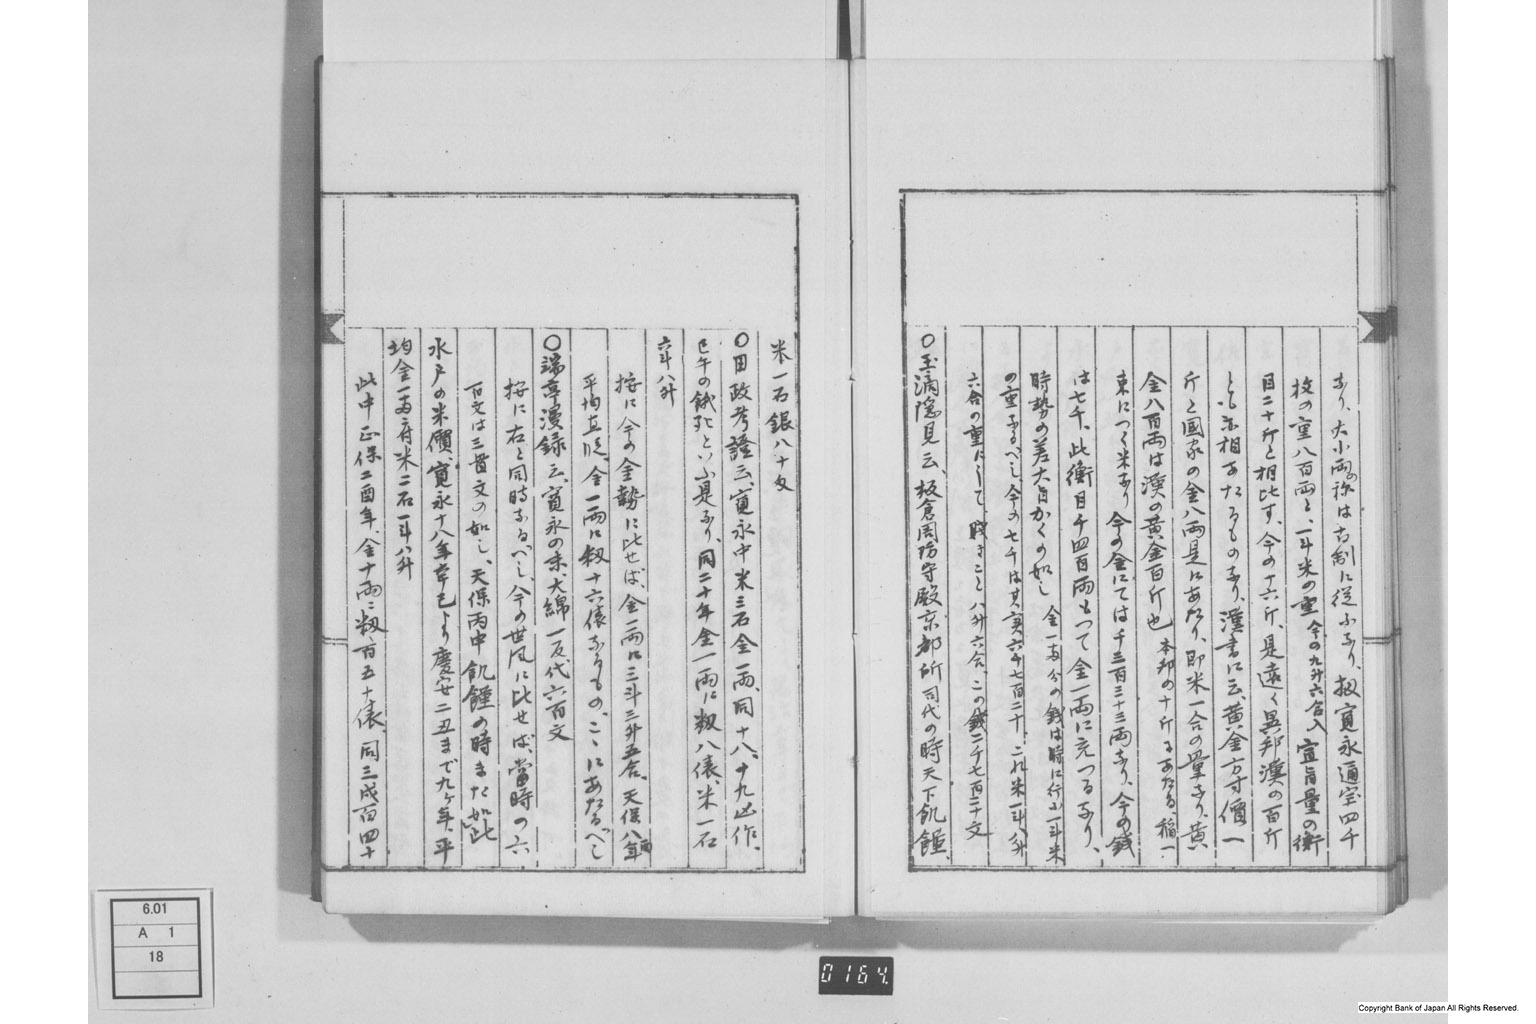 あり、大小両の称は古制に従ふなり、扨寛永通宝四千
枚の重八百両と、一斗米の重今の九升六合入宜旨量の衡
目二十斤と相比す、今の十六斤、是遠く異邦漢の百斤
と相あたるものなり、漢書に云、黄金方寸價一
斤と国家の金八両是にあたり、即米一合の量なり、黄
金八百両は漢の黄金百斤也 本邦の十斤にあたる稲一
束につく米なり 今の金にては千三百三十三両なり、今の銭
は七千、此衡目千四百両もつて金一両に充つるなり、
時勢の差大旨かくの如し 金一両分の銭は時に行ふ一斗米
の重なるべし、今の七千は其実六千七百二十、これ米一斗八升
六合の重にして、賤きこと八升六合、この銭二千七百二十文
〇玉滴隠見云、板倉周防守殿京都所司代の時天下飢饉、
米一石銀八十匁
〇田政考證云、寛永中米三石金一両、同十八、十九凶作、
巳午の餓死といふ是なり、同二十年金一両に籾八俵、米一石
六斗八升
按に今の金勢に比せば、金一両に三斗三升五合、天保八年
平均直段、金一両に籾十六俵なるもの、こゝにあたるべし
〇端亭漫録云、寛永の末、大綿一反代六百文
按に右と同時なるべし、今の世風に比せば、當時の六
百文は三貫文の如し、天保丙申飢饉の時また如此
水戸の米價、寛永十八年辛巳より慶安二丑まで九ヶ年、平
均金一両府米二石一斗八升
此中正保二酉年、金十両ニ籾百五十俵、同三戌百四十
6.01
A 1
18
0164.
Copyright Bank of Japan All Rights Reserved.